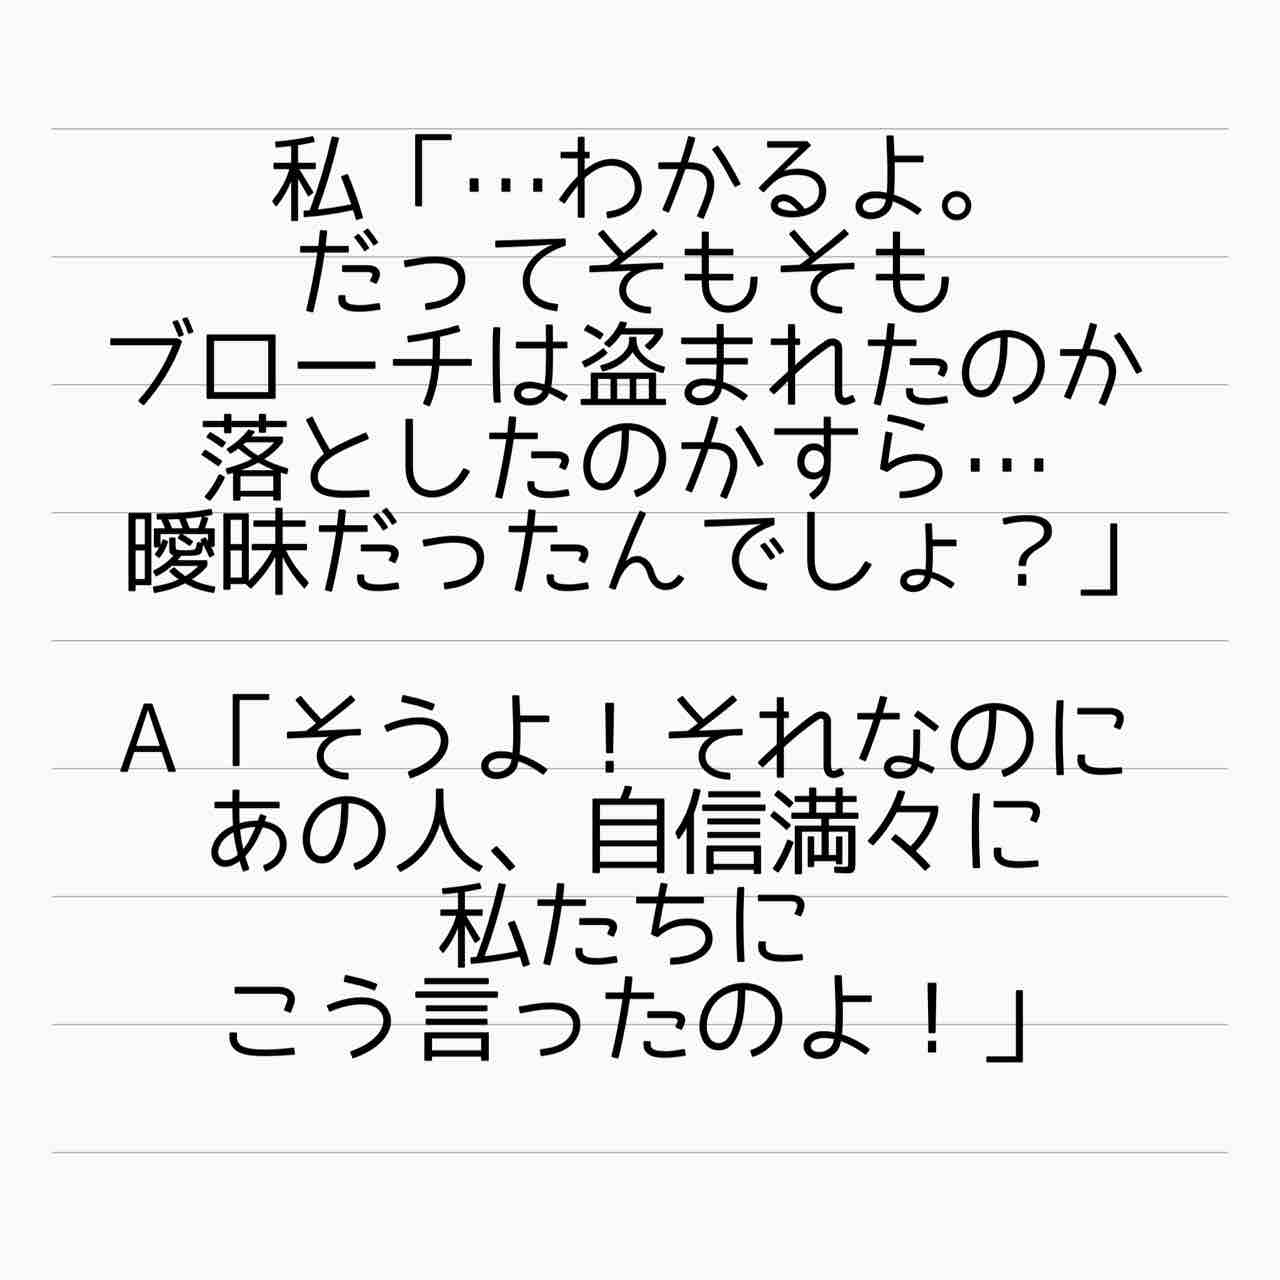 私「…わかるよ。
だってそもそも
ブローチは盗まれたのか
落としたのかすら…
曖昧だったんでしょ？」
A「そうよ！それなのに
あの人、自信満々に
私たちに
こう言ったのよ！」